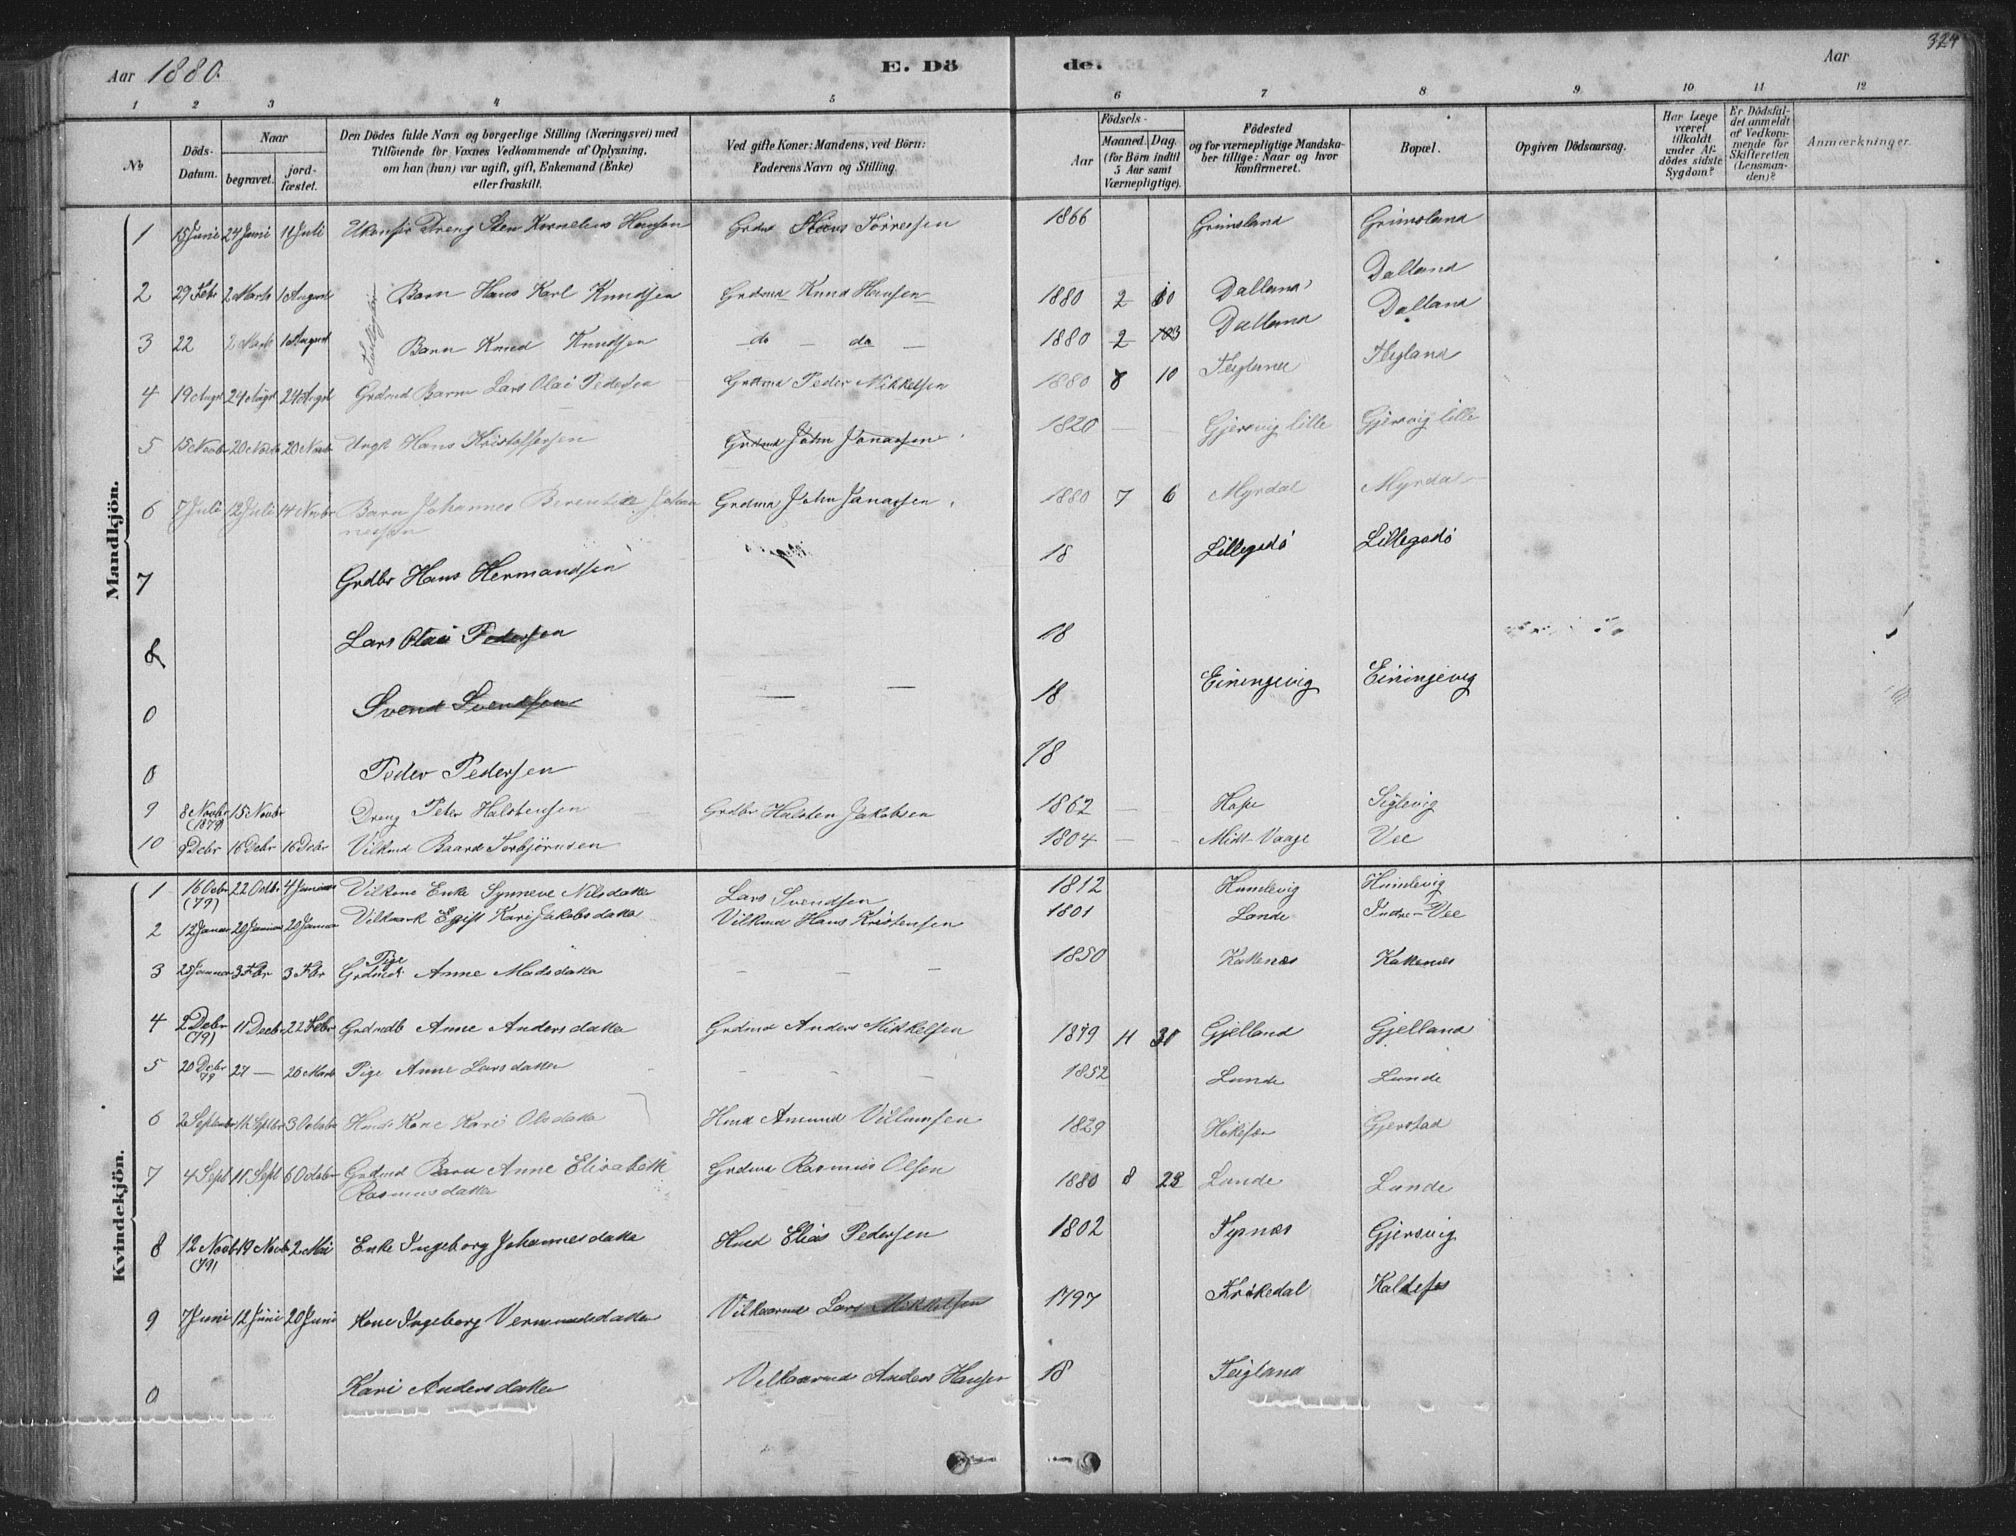 Aar 1880. E. Dö de. Aar 324
1 2 3 4 5 6 7 8 9 10 11 12
No
Döds-Datum.
Naar
begravet.
jordfæstet.
Den Dödes fulde Navn og borgerlige Stilling (Næringsvei) med
Tilföiende for Voxnes Vedkommende af Oplysning,
om han (hun) var ugift, gift, Enkemand (Enke)
eller fraskilt.
Ved gifte Koner: Mandens, ved Börn:
Faderens Navn og Stilling.
Födsels-
Aar
Maaned. Dag.
(for Börn indtil
5 Aar samt
Værnepligtige).
Födested
og for værnepligtige Mandska-
ber tillige: Naar og hvor
konfirmeret.
Bopæl.
Opgiven Dödsaarsag.
Har Læge
været
tilkaldt
under Af-
dödes sidste
Sygdom?
Er Dödsfal-
det anmeldt
af Vedkom-
mende for
Skifteretten
(Lensman-
den)?
Anmærkninger.
Mandkjön.
1 15 Juni 24 Juni 11 Juli Ukonfir Dreng Sten Kornelius Hansen Grdmd Hans Törressen 1866 Grimsland Grimsland
2 29 Febr 2 Marts 1 August Barn Hans Karl Knudsen Grdmd Knud Hansen 1880 2 Dalland Dalland
3 22 2 Marts 1 August Barn Knud Knudsen do - do - 1880 2 Dalland Dalland
4 19 Augst 24 Augst 24 Augst Grdmd Barn Lars Olai Pedersen Grdmd Peder Mikkelsen 1880 8 10 Teigland Teigland
5 15 Novbr 20 Novbr 20 Novbr Ungk Hans Kristoffersen Grdmd John Janassen 1820 Gjersvig lille Gjersvig lille
6 7 Juli 12 Juli 14 Novbr Barn Johannes Berentsen Johan Grdmd John Janassen 1880 7 6 Myrdal Myrdal
nessen
7 Grdbr Hans Hermandsen 18 Lillegodø Lillegodø
8 Lars Olai Pedersen 18
0 Svend Svendsen — — 18 Einingevig Einingevig
0 Peder Pedersen 18
9 8 Novbr (1879) 15 Novbr Dreng Peter Halstensen Grdbr Halsten Jakobsen 1862 Hope Siglevig
10 9 Debr 16 Debr 16 Debr Vilkmd Baard Torbjörnsen 1804 Midt-Vaage Vee
Kvindekjön.
1 16 Octbr (79) 22 Octbr 4 Januar Vilkone Enke Synneve Nilsdatter Lars Svendsen 1812 Humlevig Humlevig
2 12 Januar 20 Januar 20 Januar Vilkaark E gift Kari Jakobsdatter Vilkmd Hans Kristensen 1801 Lande Indre-Vee
3 25 Januar 3 Fbr 3 Fbr Grdmds Pige Anne Madsdatter — — — 1850 Kakenæs Kakenæs
4 2 Debr (79) 11 Decbr 22 Febr Grdmdb Anne Andersdatter Grdmd Anders Mikkelsen 1879 11 30 Gjelland Gjelland
5 20 Debr 79 27 — 26 Marts Pige Anne Larsdatter - - - 1852 Lunde Lunde
6 2 September 11 Septbr 3 Octobr Hmds Kone Kari Olsdatter Hmd Amund Villumsen 1829 Gjerstad
7 4 Sept 11 Sept 6 October Grdmd Barn Anne Elisabeth Grdmd Rasmus Olsen 1880 8 23 Lunde Lunde
Rasmusdatter
8 12 Novbr (79) 19 Novbr 2 Mai Enke Ingeborg Johannesdatter Hmd Elias Pedersen 1802 Tysnæs Gjersvig
9 7 Juni 12 Juni 20 Juni Kone Ingeborg Vermundsdatter Vilkaarmd Lars Mikkelsen 1797 Krökedal
0 Kari Andersdatter Vilkaarmd Anders Hansen 18 Teigland